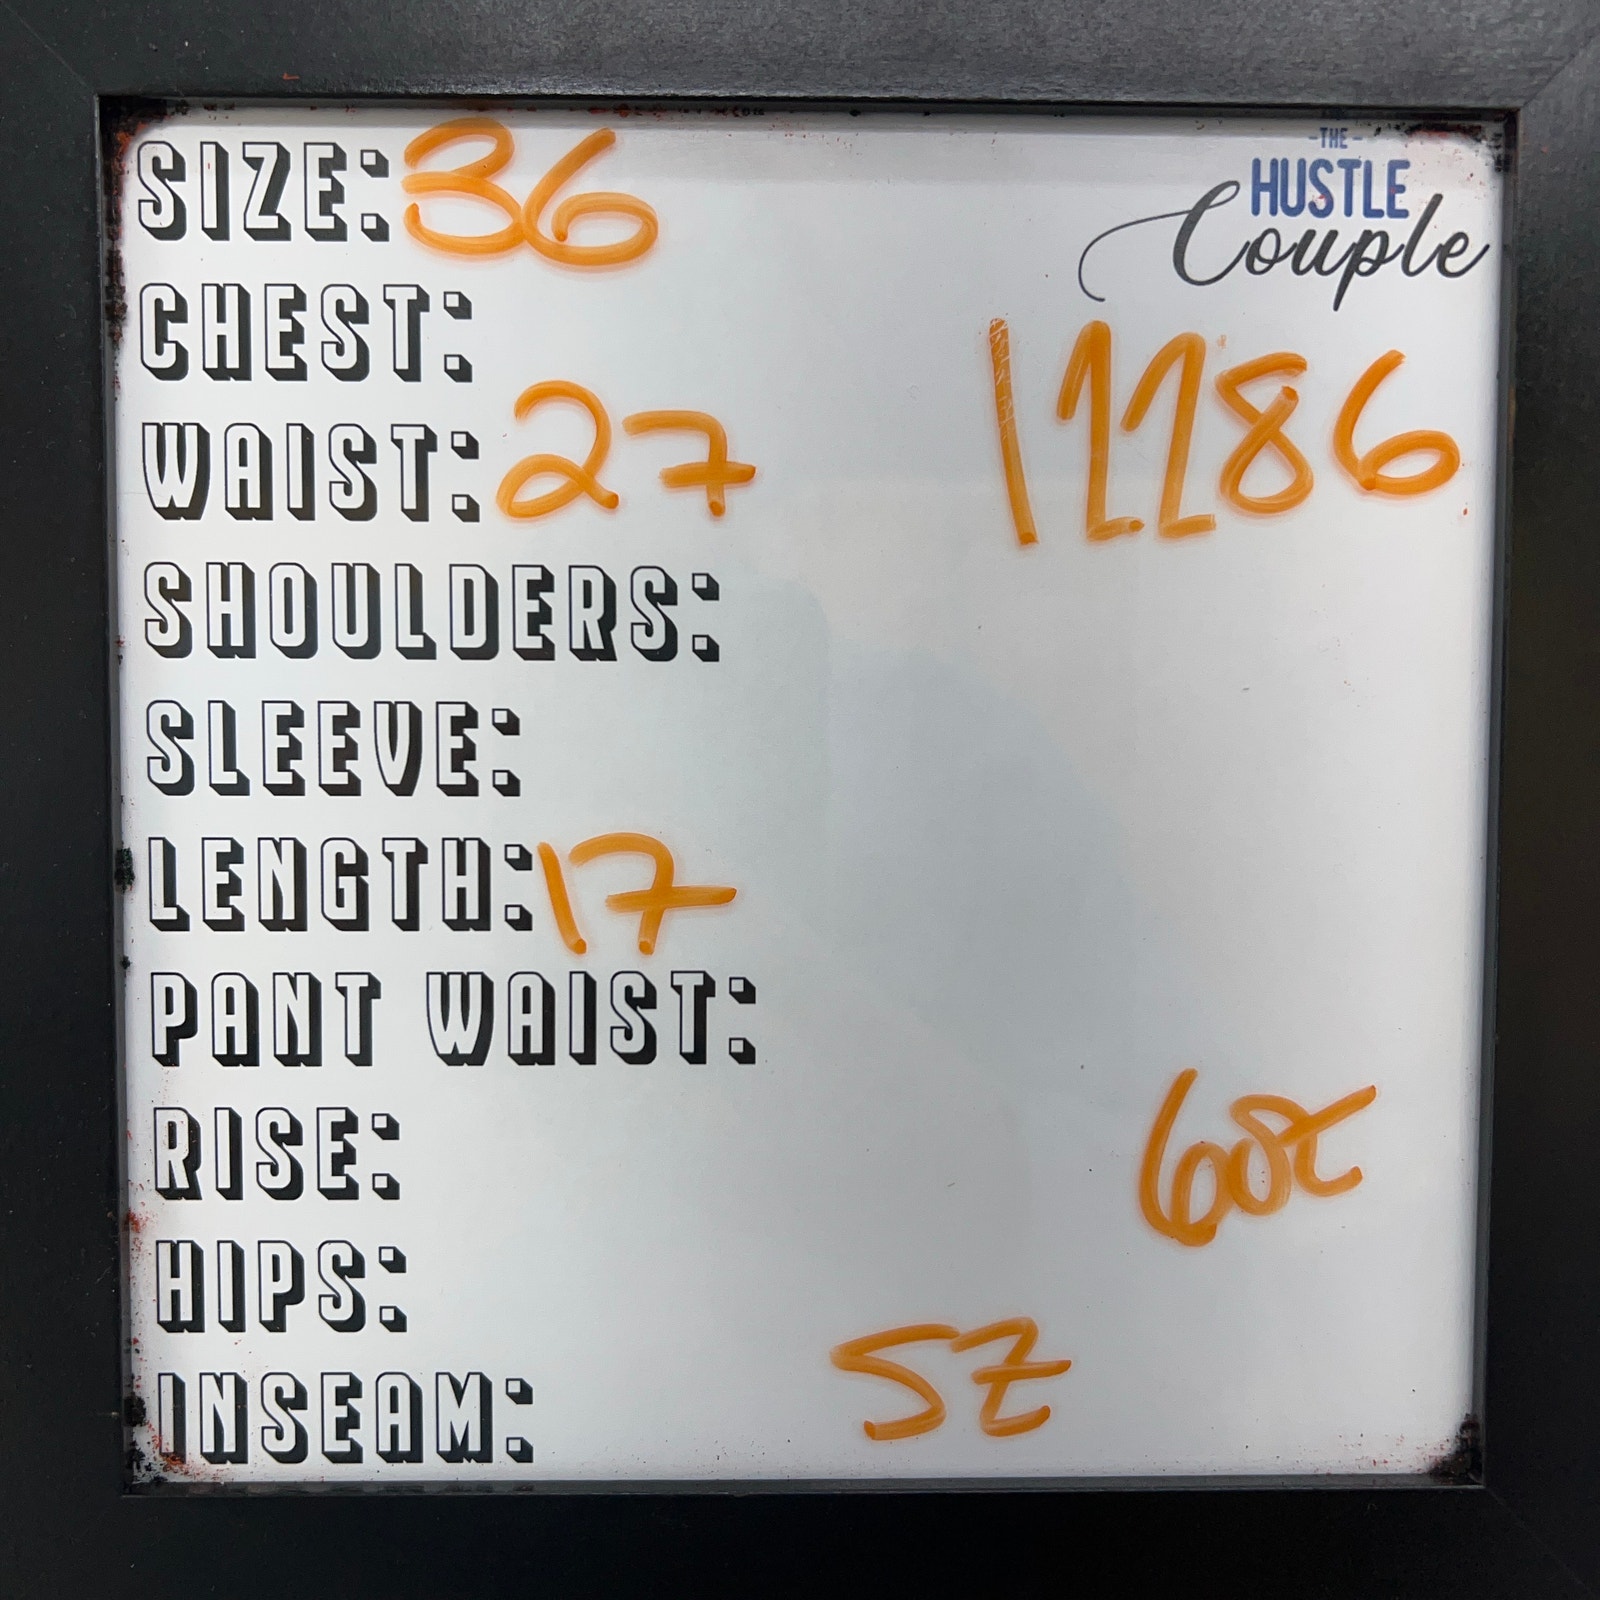 SIZE: 36
-THE-
HUSTLE
Couple
CHEST:
WAIST: 27
SHOULDERS:
SLEEVE:
LENGTH: 17
PANT WAIST:
RISE:
HIPS:
INSEAM: